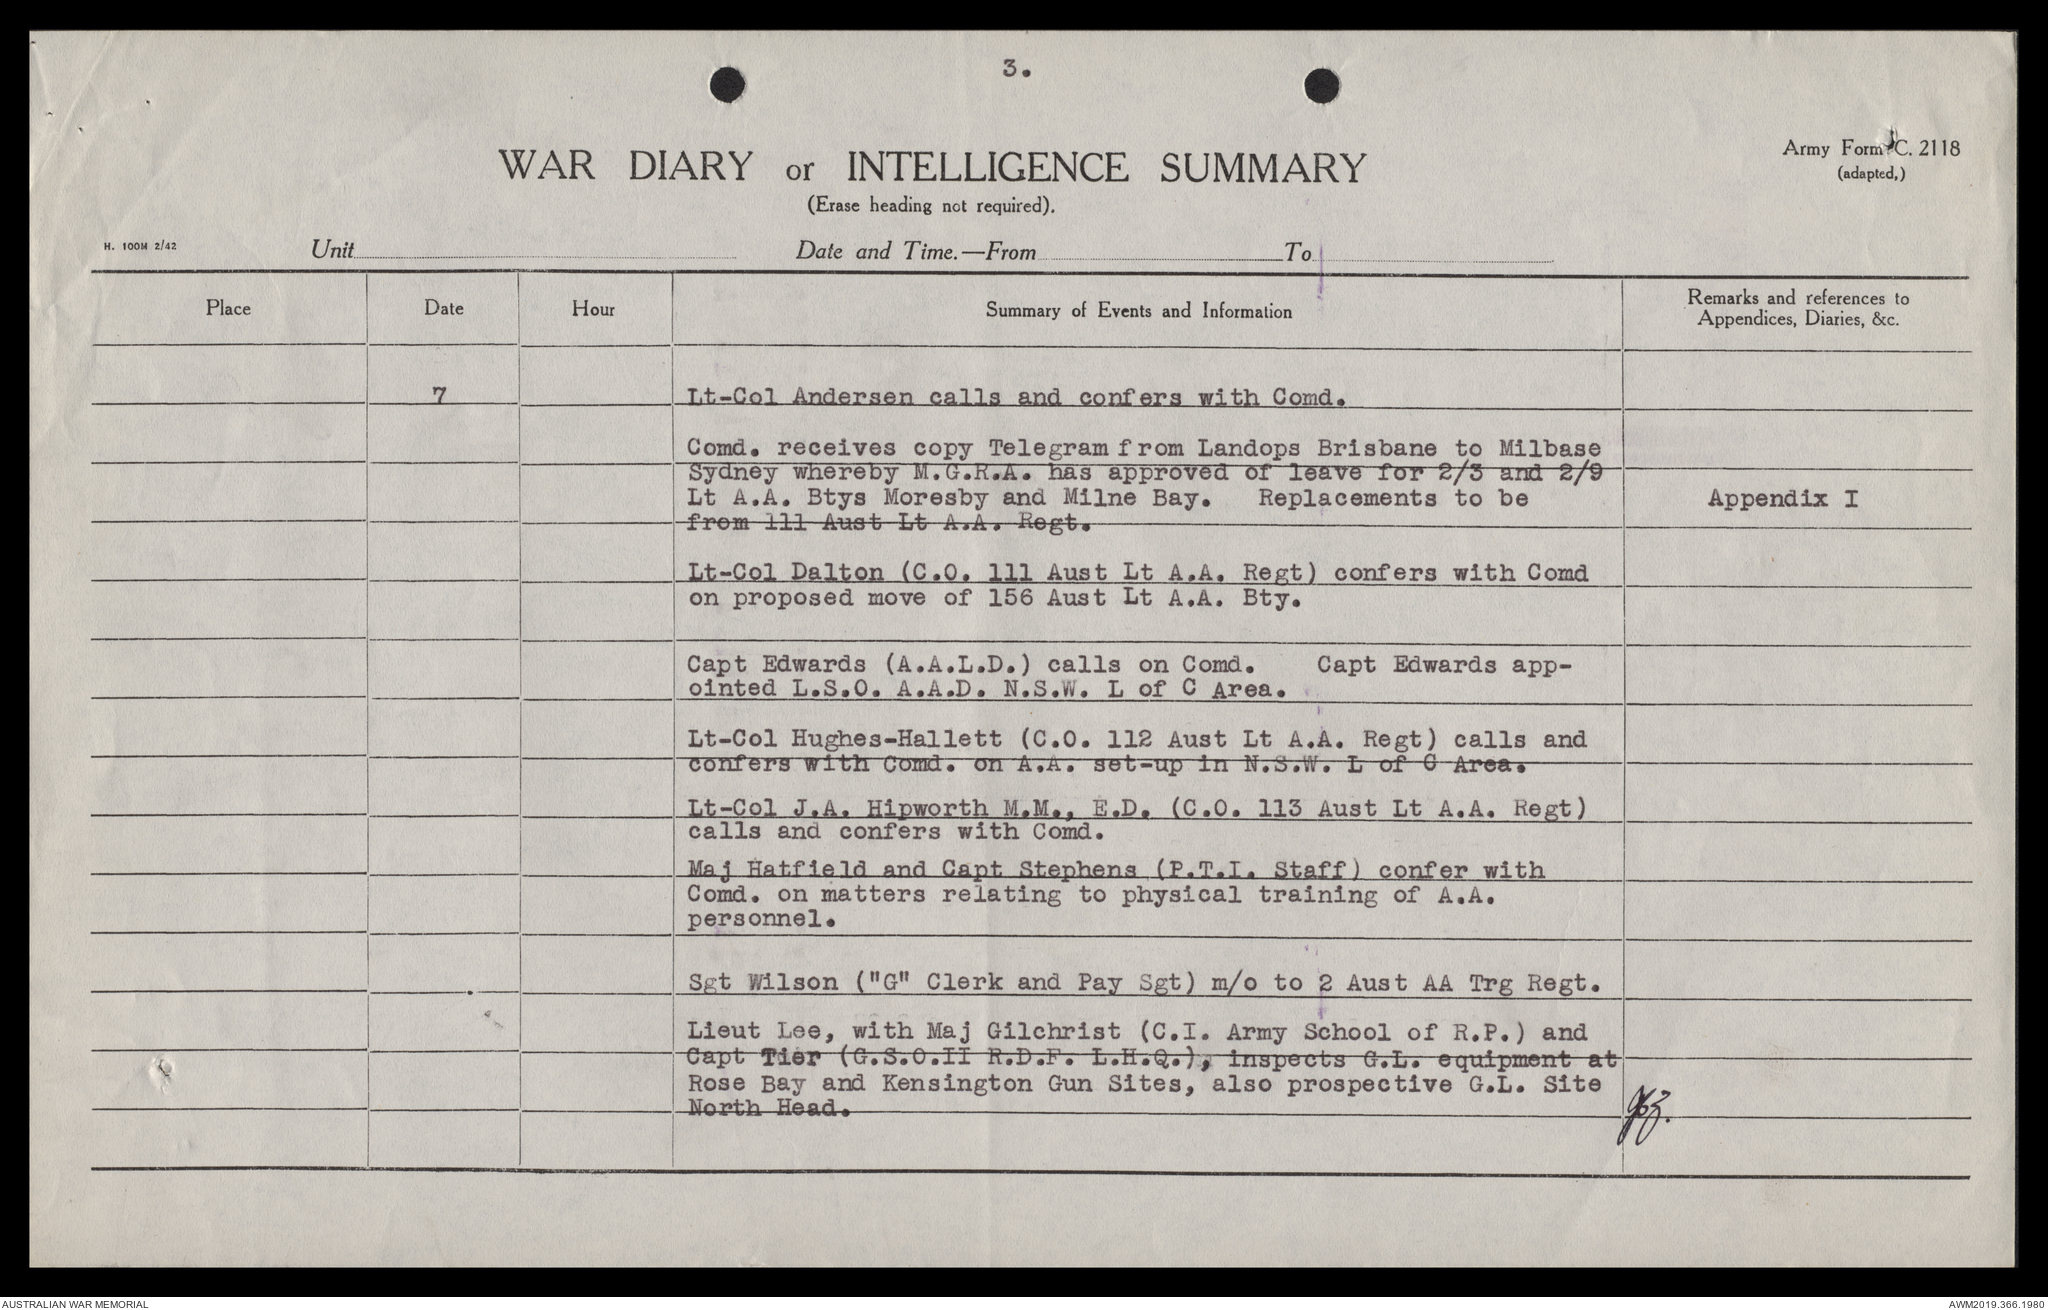 3.
WAR DIARY or INTELLIGENCE SUMMARY
(Erase heading not required).
Army Form C. 2118
(adapted,)
H. 100M 2/42
Unit Date and Time.—From To
Place Date Hour Summary of Events and Information Remarks and references to
Appendices, Diaries, &c.
7 Lt-Col Andersen calls and confers with Comd.
Comd. receives copy Telegram from Landops Brisbane to Milbase
Sydney whereby M.G.R.A. has approved of leave for 2/3 and 2/9
Lt A.A. Btys Moresby and Milne Bay. Replacements to be Appendix I
from 111 Aust Lt A.A. Regt.
Lt-Col Dalton (C.O. 111 Aust Lt A.A. Regt) confers with Comd
on proposed move of 156 Aust Lt A.A. Bty.
Capt Edwards (A.A.L.D.) calls on Comd. Capt Edwards app-
ointed L.S.O. A.A.D. N.S.W. L of C Area.
Lt-Col Hughes-Hallett (C.O. 112 Aust Lt A.A. Regt) calls and
confers with Comd. on A.A. set-up in N.S.W. L of C Area.
Lt-Col J.A. Hipworth M.M., E.D. (C.O. 113 Aust Lt A.A. Regt)
calls and confers with Comd.
Maj Hatfield and Capt Stephens (P.T.I. Staff) confer with
Comd. on matters relating to physical training of A.A.
personnel.
Sgt Wilson ("G" Clerk and Pay Sgt) m/o to 2 Aust AA Trg Regt.
Lieut Lee, with Maj Gilchrist (C.I. Army School of R.P.) and
Capt Tier (G.S.O.II R.D.F. L.H.Q.), inspects G.L. equipment at
Rose Bay and Kensington Gun Sites, also prospective G.L. Site
North Head.
AUSTRALIAN WAR MEMORIAL
AWM2019.366.1980